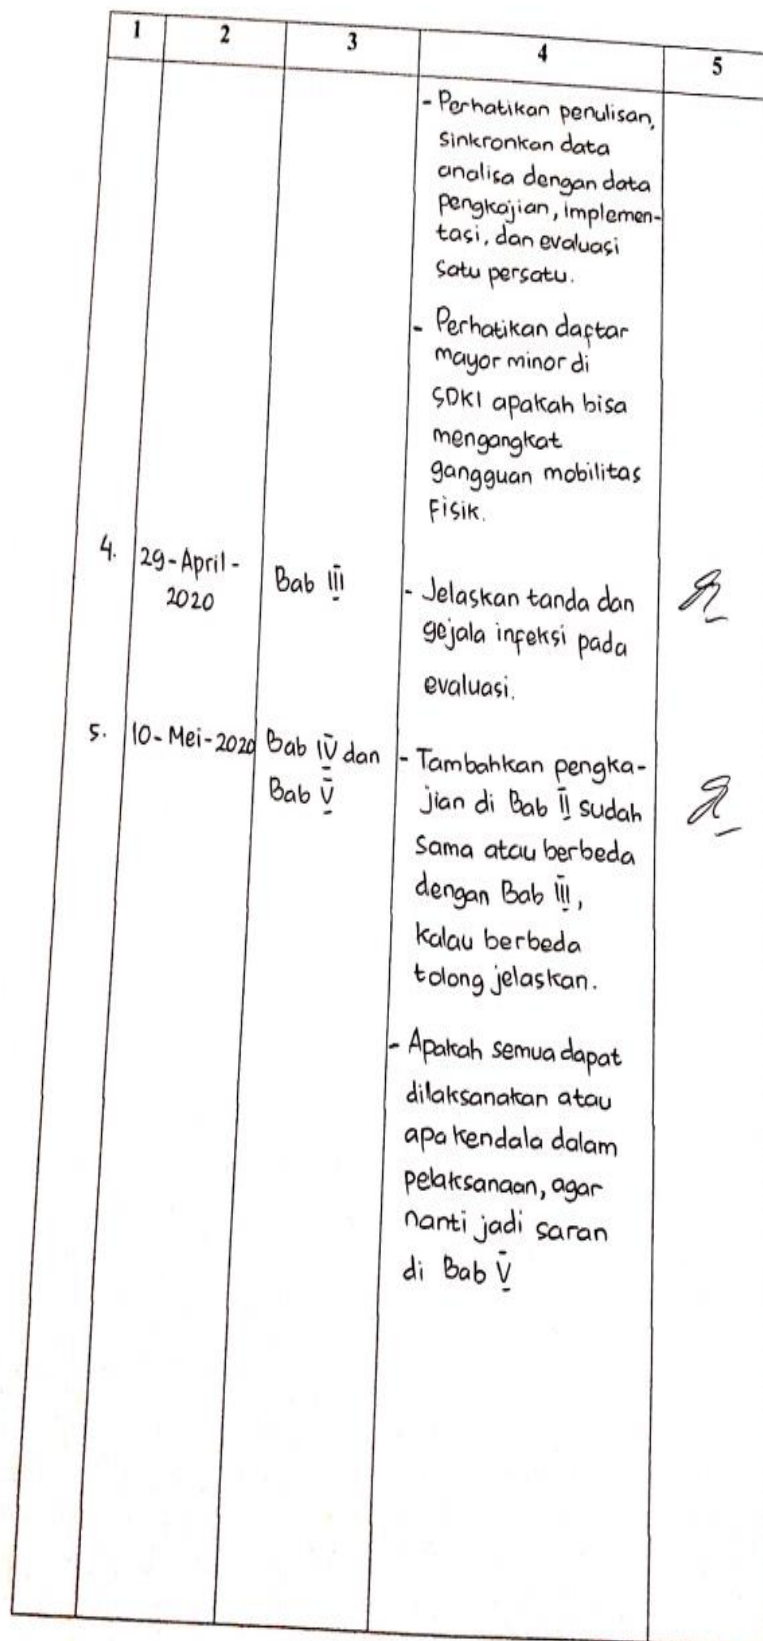 1 2 3 4 5
- Perhatikan penulisan,
sinkronkan data
analisa dengan data
pengkajian, implemen-
tasi, dan evaluasi
satu persatu.
- Perhatikan daftar
mayor minor di
SDKI apakah bisa
mengangkat
gangguan mobilitas
Fisik.
4. 29-April- Bab III - Jelaskan tanda dan
2020 gejala infeksi pada
evaluasi.
5. 10-Mei-2020 Bab IV dan - Tambahkan pengka-
Bab V jian di Bab II sudah
sama atau berbeda
dengan Bab III,
kalau berbeda
tolong jelaskan.
- Apakah semua dapat
dilaksanakan atau
apa kendala dalam
pelaksanaan, agar
nanti jadi saran
di Bab V